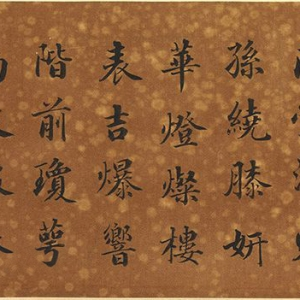 孫繞膝妍
華燈燦樓
表吉爆響
階前瓊萼